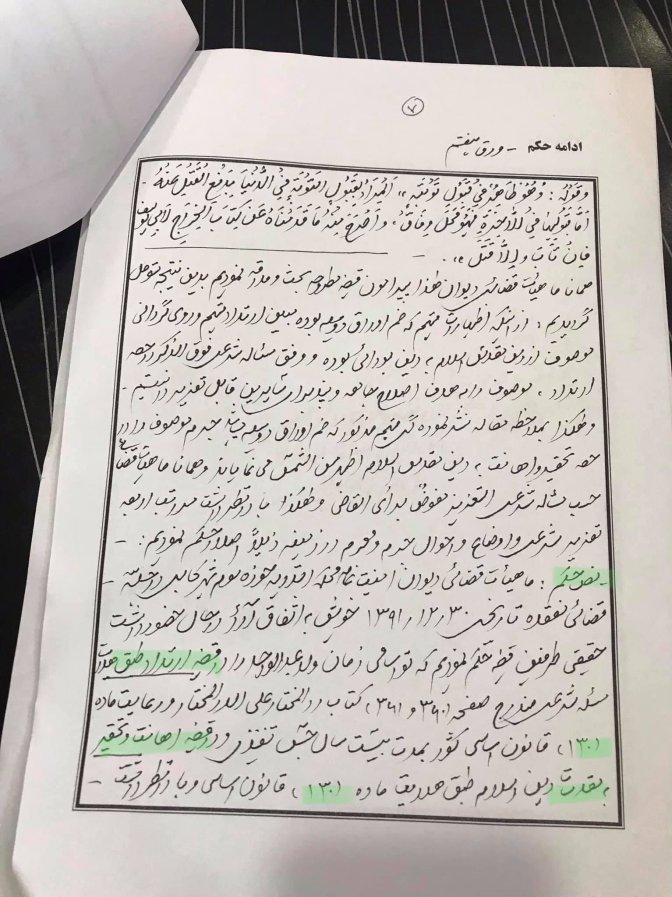 ۷
ادامه حکم - ورق هفتم
وقوله: وهو ظاهر في قبول توبته، المراد بقبول التوبة في الدنيا بدفع القتل عنه
أما قبولها في الآخرة فهو محل وفاق. وأخرج منه ما قدمناه عن كتاب الخراج لأبي يوسف
فإن تاب وإلا قتل».
همانا ما هیأت قضائی دیوان هذا پیرامون قضیه مطروحه بحث و مداقه نمودیم بدین نتیجه متوصل
گردیدیم: از اینکه اظهارات متهم که ضم اوراق دوسیه بوده مبین ارتداد متهم و روی گردانی
موصوف از دین مقدس اسلام به دین بودائی بوده و وفق مسئله شرعی فوق الذکر در حصه
ارتداد، موصوف را به هدف اصلاح جامعه و پند برای سایرین قابل تعزیر دانستیم
وهکذا بملاحظه مقاله نشر نموده گی متهم مذکور که ضم اوراق دوسیه میباشد جرم موصوف را در
حصه تحقیر و اهانت به دین مقدس اسلام اظهر من الشمس می نمایاند و همانا ما هیأت قضائی
حسب مسئله شرعی التعزیر مفوض برأی القاضی وهکذا با در نظرداشت مراتب اربعه
تعزیر شرعی و اوضاع و احوال جرم و مجرم در زمینه ذیلاً اصدار حکم نمودیم: -
نص حکم: ما هیأت قضائی دیوان امنیت عامه محکمه ابتدائیه حوزه سوم شهر کابل در جلسه
قضائی منعقده تاریخی ۳۰ر۱۲ر۱۳۹۱ خویش به اتفاق آراء در حال حضور داشت
حقیقی طرفین قضیه حکم نمودیم که تو اسامی زمان ولد عبدالواحد را در قضیه ارتداد طبق هدایت
مسئله شرعی مندرج صفحه (۳۶۰ و ۳۶۱) کتاب رد المختار علی الدر المختار و رعایت ماده
(۱۳۰) قانون اساسی کشور بمدت بیست سال حبس تنفیذی و در قضیه اهانت و تحقیر
به مقدسات دین اسلام طبق هدایت ماده (۱۳۰) قانون اساسی و با در نظرداشت